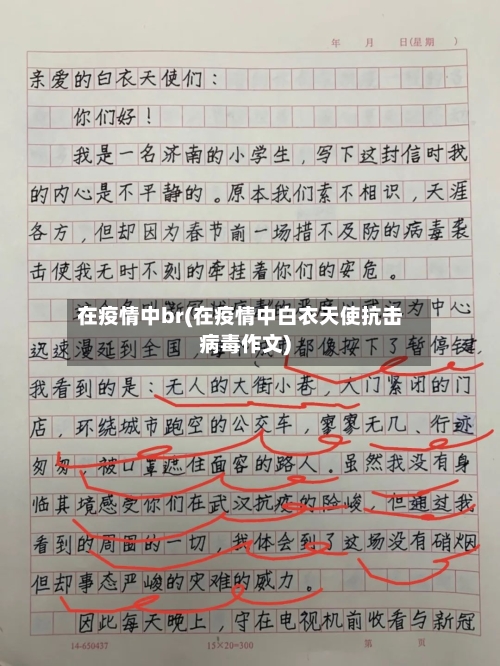 年 月 日(星期 )
亲爱的白衣天使们：
你们好！
我是一名济南的小学生，写下这封信时我
的内心是不平静的。原本我们素不相识，天涯
各方，但却因为春节前一场措不及防的病毒袭
击使我无时不刻的牵挂着你们的安危。
为中心
在疫情中br(在疫情中白衣天使抗击
病毒作文)
迅速漫延到全国，都像按下了暂停键，
我看到的是：无人的大街小巷，大门紧闭的门
店，环绕城市跑空的公交车，寥寥无几、行迹
匆匆、被口罩遮住面容的路人。虽然我没有身
临其境感受你们在武汉抗疫的险峻，但通过我
看到的周围的一切，我体会到了这场没有硝烟
但却事态严峻的灾难的威力。
因此每天晚上，守在电视机前收看与新冠
14-650437 15×20=300 第 页